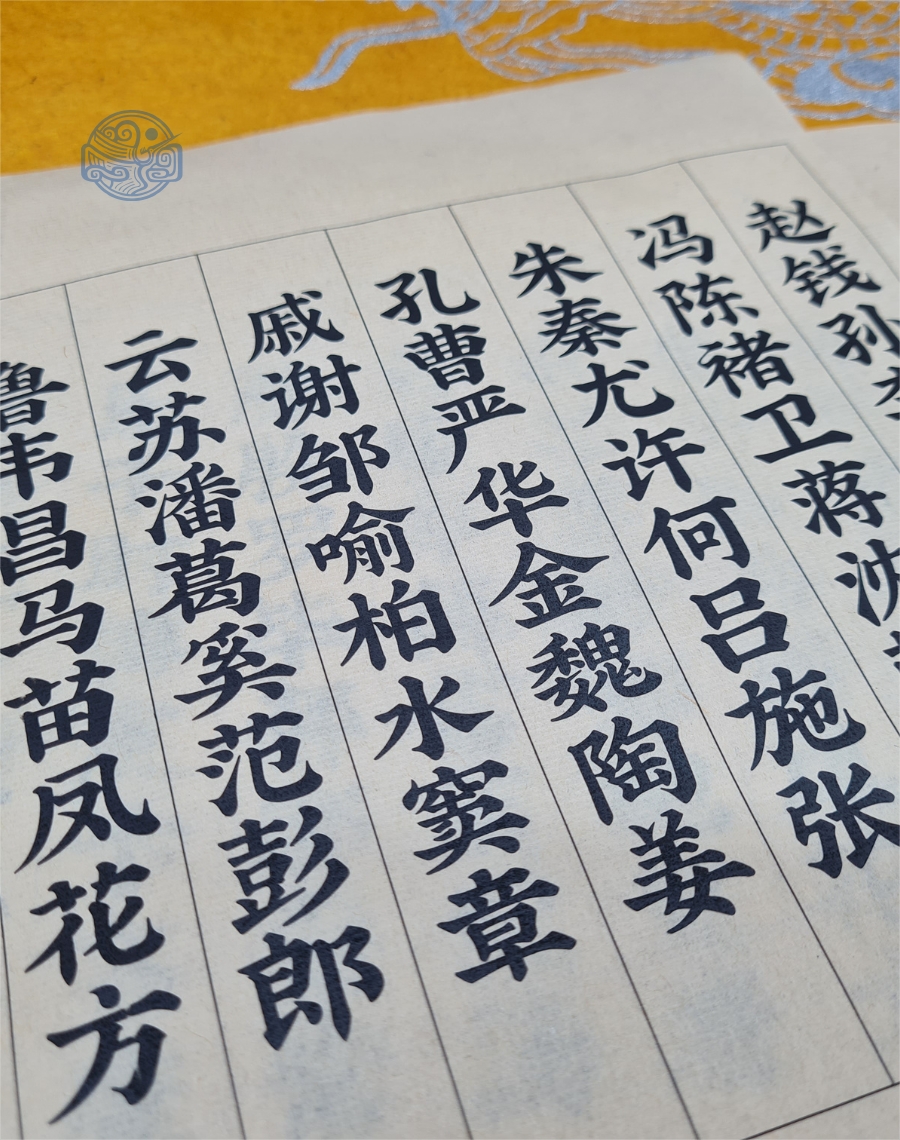 赵钱孙
冯陈褚卫蒋沈
朱秦尤许何吕施张
孔曹严华金魏陶姜
戚谢邹喻柏水窦章
云苏潘葛奚范彭郎
鲁韦昌马苗凤花方